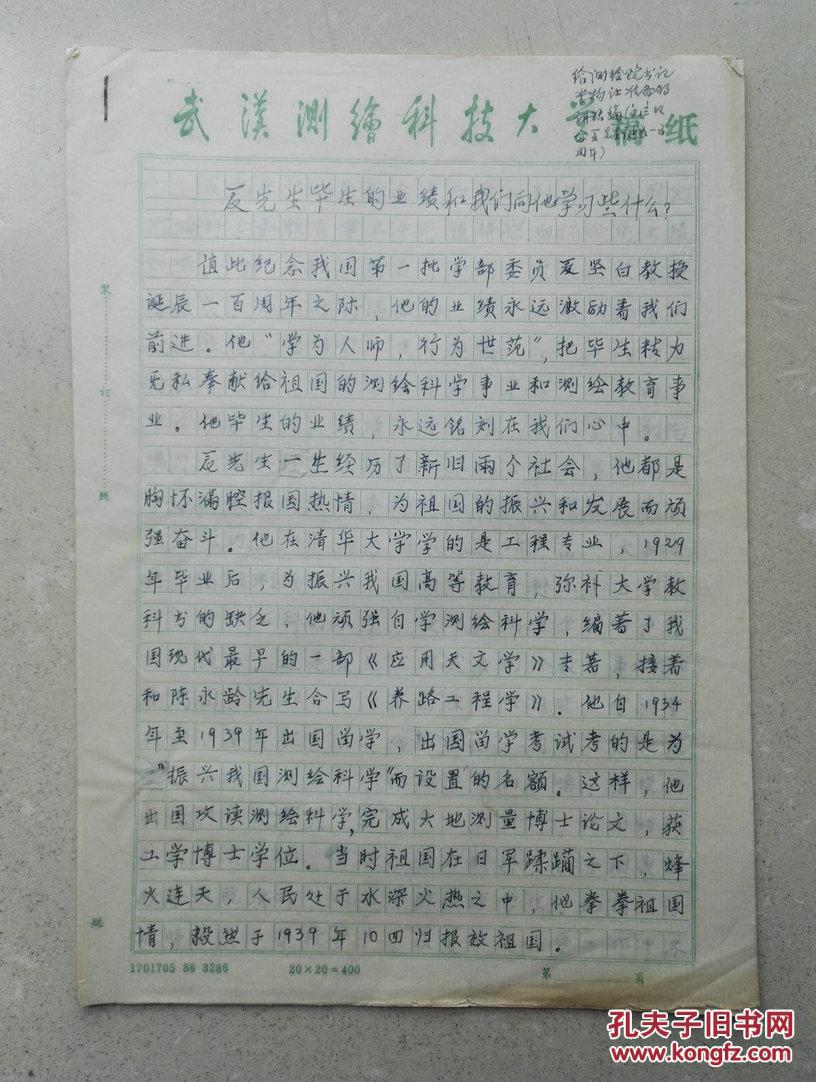 武漢測繪科技大学稿纸
给测绘院书记
夏先生毕生的业绩和我们向他学习些什么?
值此纪念我国第一批学部委员夏坚白教授
诞辰一百周年之际,他的业绩永远激励着我们
前进。他“学为人师,行为世范”,把毕生精力
无私奉献给祖国的测绘科学事业和测绘教育事
业。他毕生的业绩,永远铭刻在我们心中。
夏先生一生经历了新旧兩个社会,他都是
胸怀满腔报国热情,为祖国的振兴和发展而顽
强奋斗。他在清华大学学的是工程专业,1929
年毕业后,为振兴我国高等教育,弥补大学教
科书的缺乏,他顽强自学测绘科学,编著了我
国现代最早的一部《应用天文学》专著,接着
和陈永龄先生合写《养路工程学》.他自1934
年至1939年出国留学,出国留学考试考的是为
“振兴我国测绘科学”而设置的名额。这样,他
出国攻读测绘科学,完成大地测量博士论文,获
工学博士学位。当时祖国在日军蹂躏之下,烽
火连天,人民处于水深火热之中,他拳拳祖国
情,毅然于1939年10回归报效祖国。
装
订
线
规
1701705 86 3286 20×20=400 第 页
孔夫子旧书网
www.kongfz.com